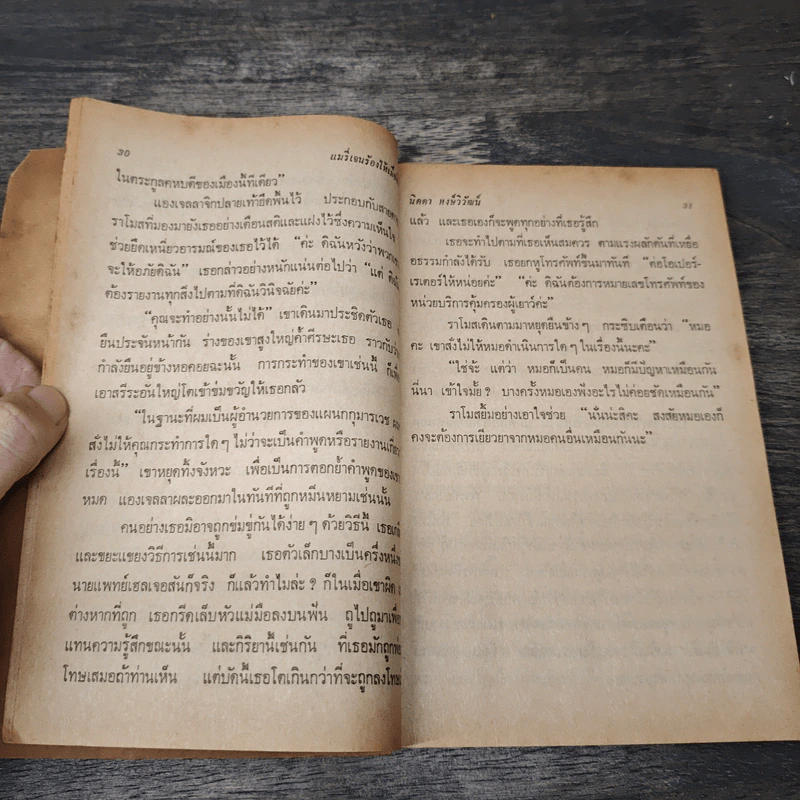 30
แมรี่เจนร้องไห้
ในตระกูลคหบดีของเมืองนี้ทีเดียว”
แองเจลลาจิกปลายเท้ายึดพื้นไว้ ประกอบกับสายตา
ราโมสที่มองมายังเธออย่างเตือนสติและแฝงไว้ซึ่งความเห็นใจ
ช่วยยึดเหนี่ยวอารมณ์ของเธอไว้ได้ “ค่ะ ดิฉันหวังว่าพวก
จะให้อภัยดิฉัน” เธอกล่าวอย่างหนักแน่นต่อไปว่า “แต่
ต้องรายงานทุกสิ่งไปตามที่ดิฉันวินิจฉัยค่ะ”
“คุณจะทำอย่างนั้นไม่ได้” เขาเดินมาประชิดตัวเธอ
ยืนประจันหน้ากัน ร่างของเขาสูงใหญ่ค้ำศีรษะเธอ ราวกับว่า
กำลังยืนอยู่ข้างหอคอยฉะนั้น การกระทำของเขาเช่นนี้ ก็เพื่อ
เอาสรีระอันใหญ่โตเข้าข่มขวัญให้เธอกลัว
“ในฐานะที่ผมเป็นผู้อำนวยการของแผนกกุมารเวช
สั่งไม่ให้คุณกระทำการใดๆ ไม่ว่าจะเป็นคำพูดหรือรายงานเกี่ยว
เรื่องนี้” เขาหยุดทิ้งจังหวะ เพื่อเป็นการตอกย้ำคำพูดของเขา
หมด แองเจลลาผละออกมาในทันทีที่ถูกหมิ่นหยามเช่นนั้น
คนอย่างเธอมิอาจถูกข่มขู่กันได้ง่ายๆ ด้วยวิธีนี้ เธอ
และขยะแขยงวิธีการเช่นนี้มาก เธอตัวเล็กบางเป็นครึ่งหนึ่ง
นายแพทย์เฮลเจอสันก็จริง ก็แล้วทำไมล่ะ ? ก็ในเมื่อเขาผิด
ต่างหากที่ถูก เธอกรีดเล็บหัวแม่มือลงบนฟัน ถูไปถูมาเพื่อ
แทนความรู้สึกขณะนั้น และกิริยานี้เช่นกัน ที่เธอมักถูก
โทษเสมอถ้าท่านเห็น แต่บัดนี้เธอโตเกินกว่าที่จะถูกลงโทษ
นิดดา หงษ์วิวัฒน์
31
แล้ว และเธอเองก็จะพูดทุกอย่างที่เธอรู้สึก
เธอจะทำไปตามที่เธอเห็นสมควร ตามแรงผลักดันที่เหยื่อ
อธรรมกำลังได้รับ เธอยกหูโทรศัพท์ขึ้นมาทันที “ต่อโอเปอร์-
เรเตอร์ให้หน่อยค่ะ” “ค่ะ ดิฉันต้องการหมายเลขโทรศัพท์ของ
หน่วยบริการคุ้มครองผู้เยาว์ค่ะ”
ราโมสเดินตามมาหยุดยืนข้างๆ กระซิบเตือนว่า “หมอ
คะ เขาสั่งไม่ให้หมอดำเนินการใดๆ ในเรื่องนี้นะคะ”
“ใช่จ้ะ แต่ว่า หมอก็เป็นคน หมอก็มีปัญหาเหมือนกัน
นี่นา เข้าใจมั้ย ? บางครั้งหมอเองฟังอะไรไม่ค่อยชัดเหมือนกัน”
ราโมสยิ้มอย่างเอาใจช่วย “นั่นน่ะสิคะ สงสัยหมอเองก็
คงจะต้องการเยียวยาจากหมอคนอื่นเหมือนกันนะ”